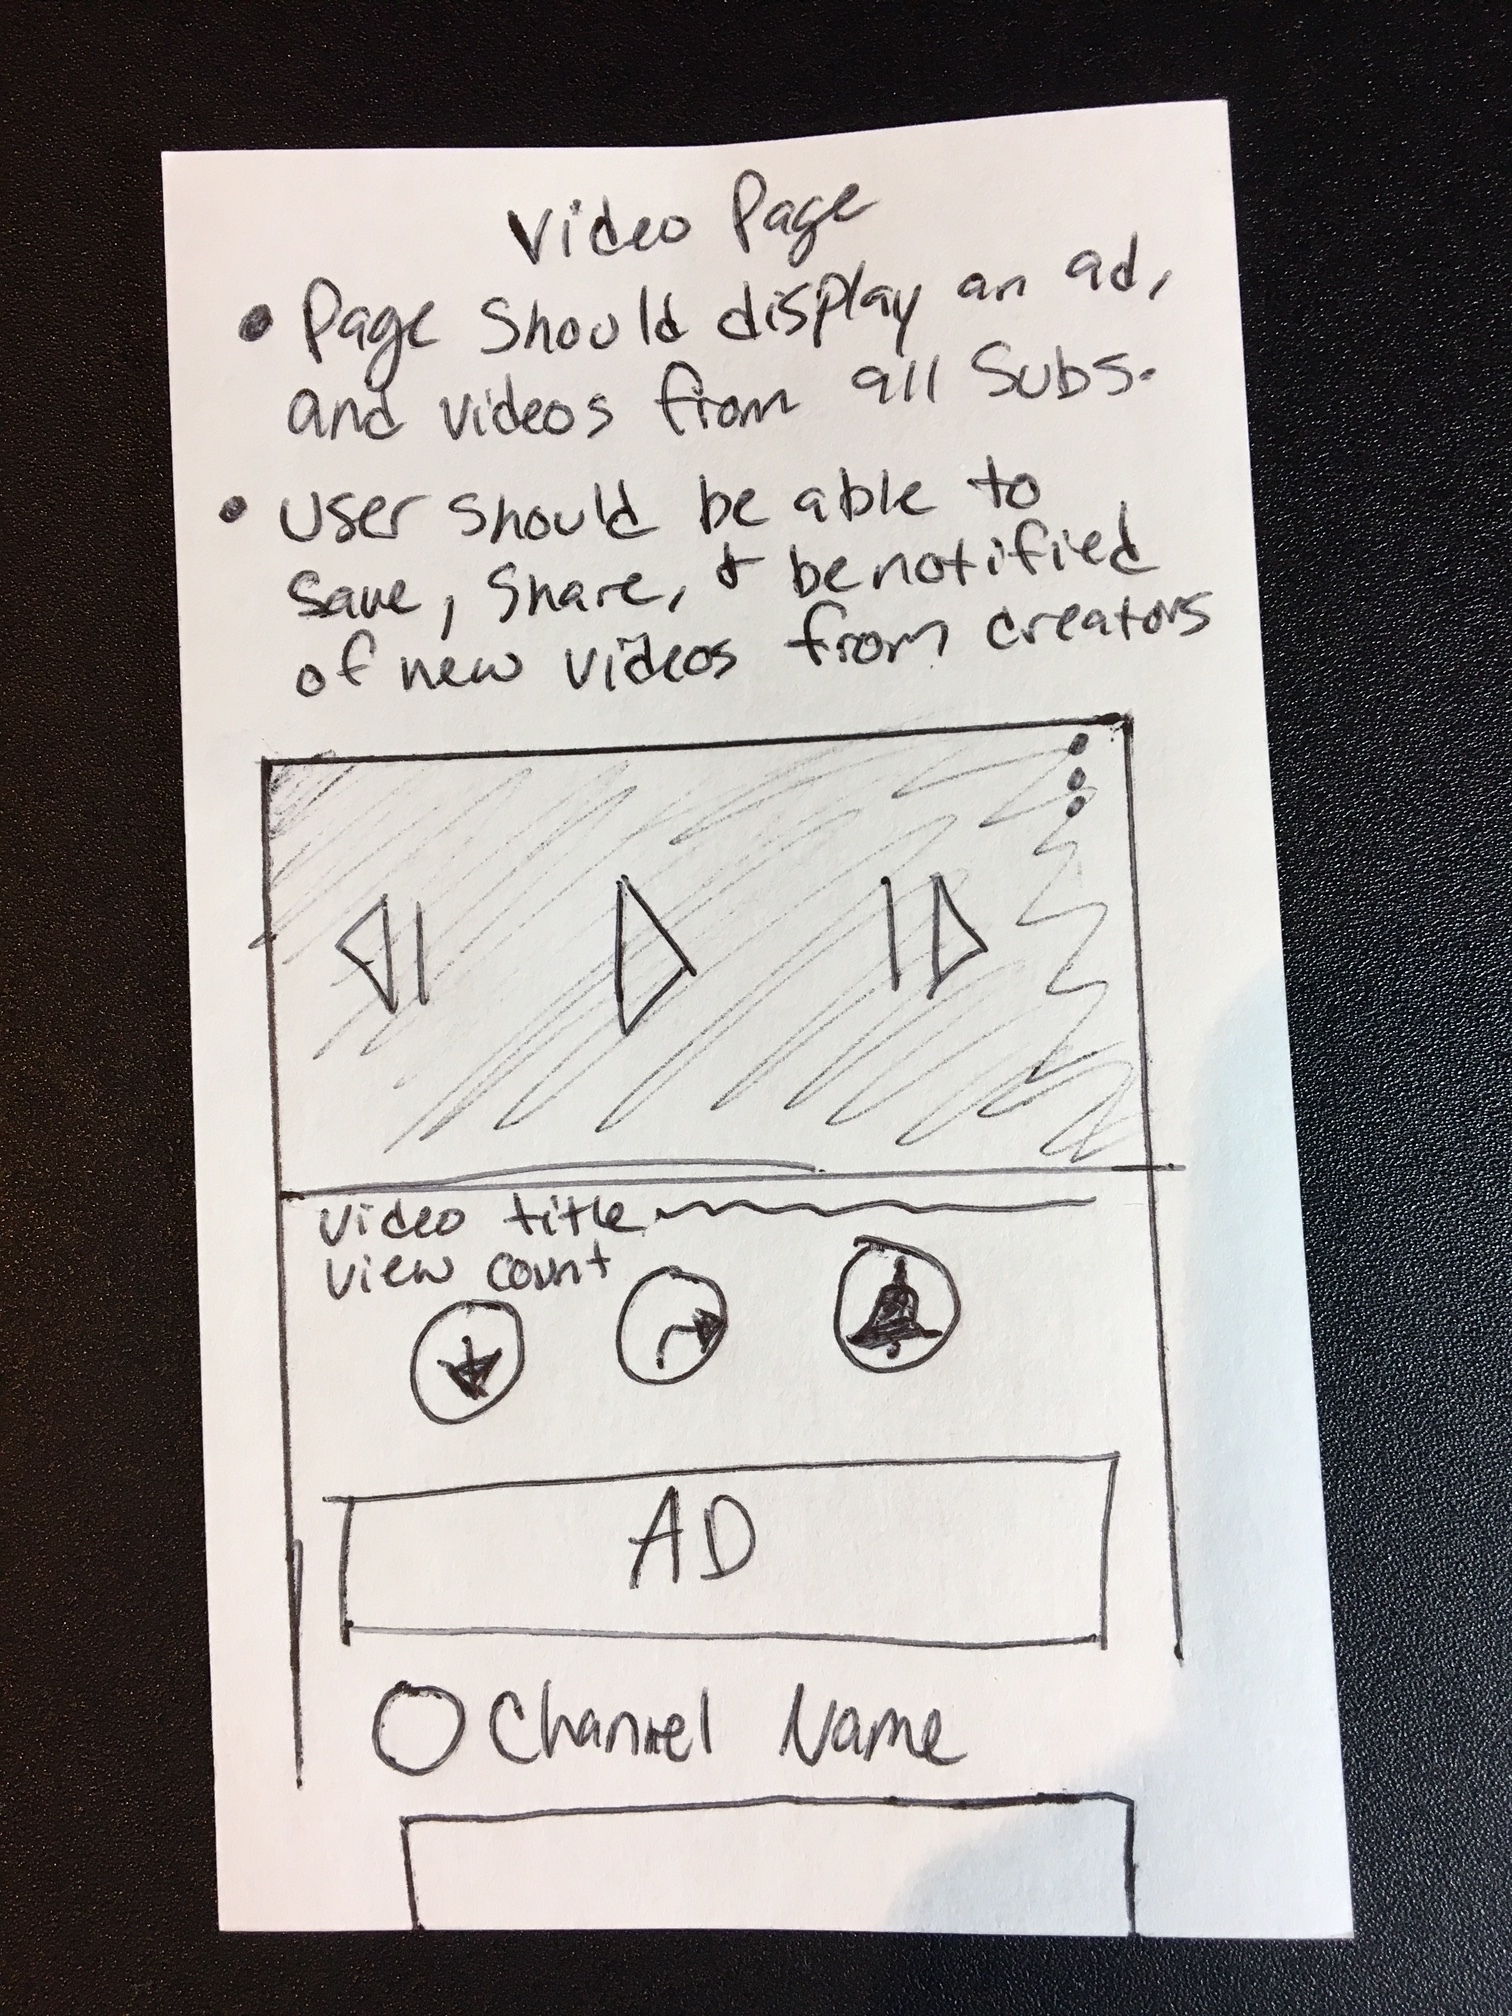 Video Page
• Page should display an ad,
and videos from all Subs.
• User should be able to
Save, Share, & be notified
of new videos from creators
Video title
View count
AD
Channel Name